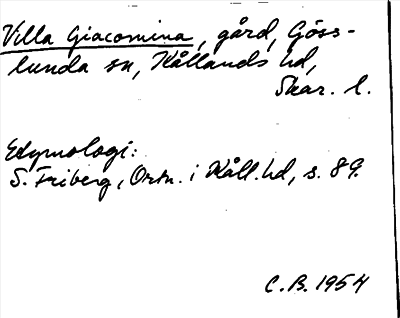 Villa Giacomina, gård, Göss-
lunda sn, Kållands hd,
Skar. l.
Etymologi:
S. Friberg, Ortn. i Kåll. hd, s. 89.
C.B. 1954